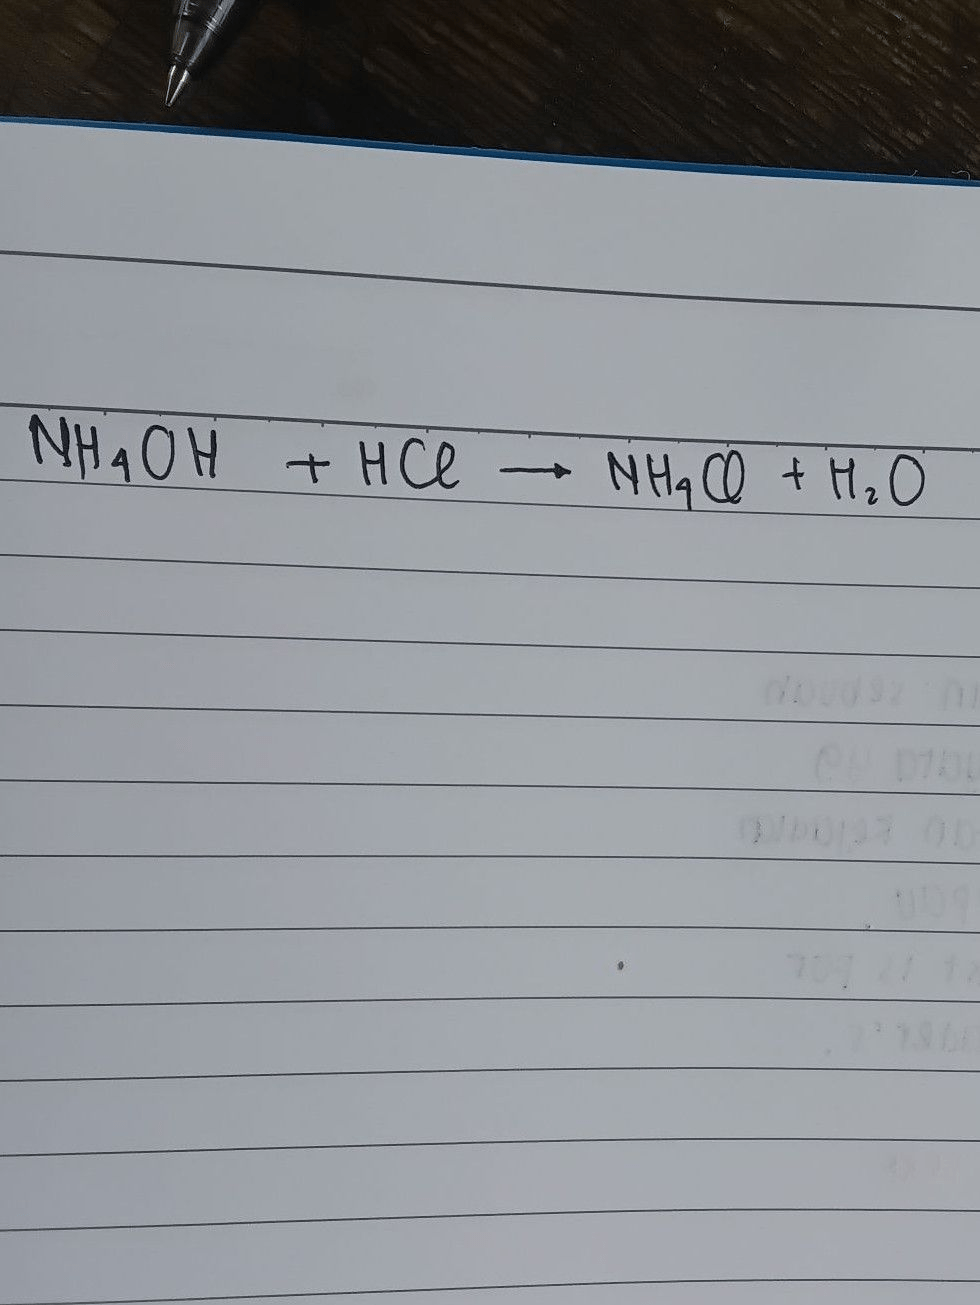 NH₄OH + HCl → NH₄Cl + H₂O